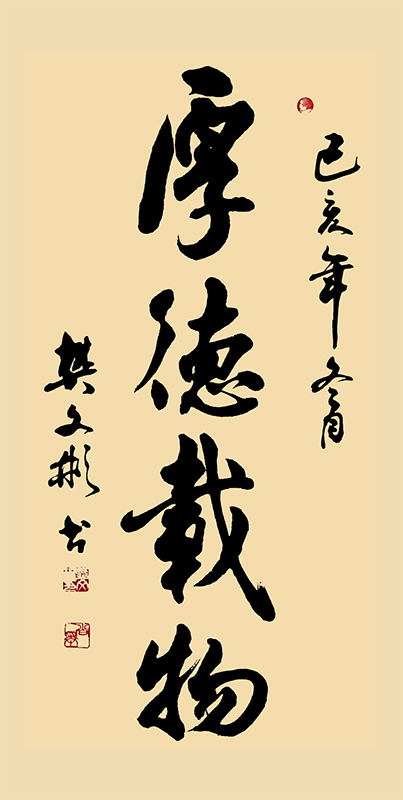 己亥年冬月
厚德载物
樊文彬书